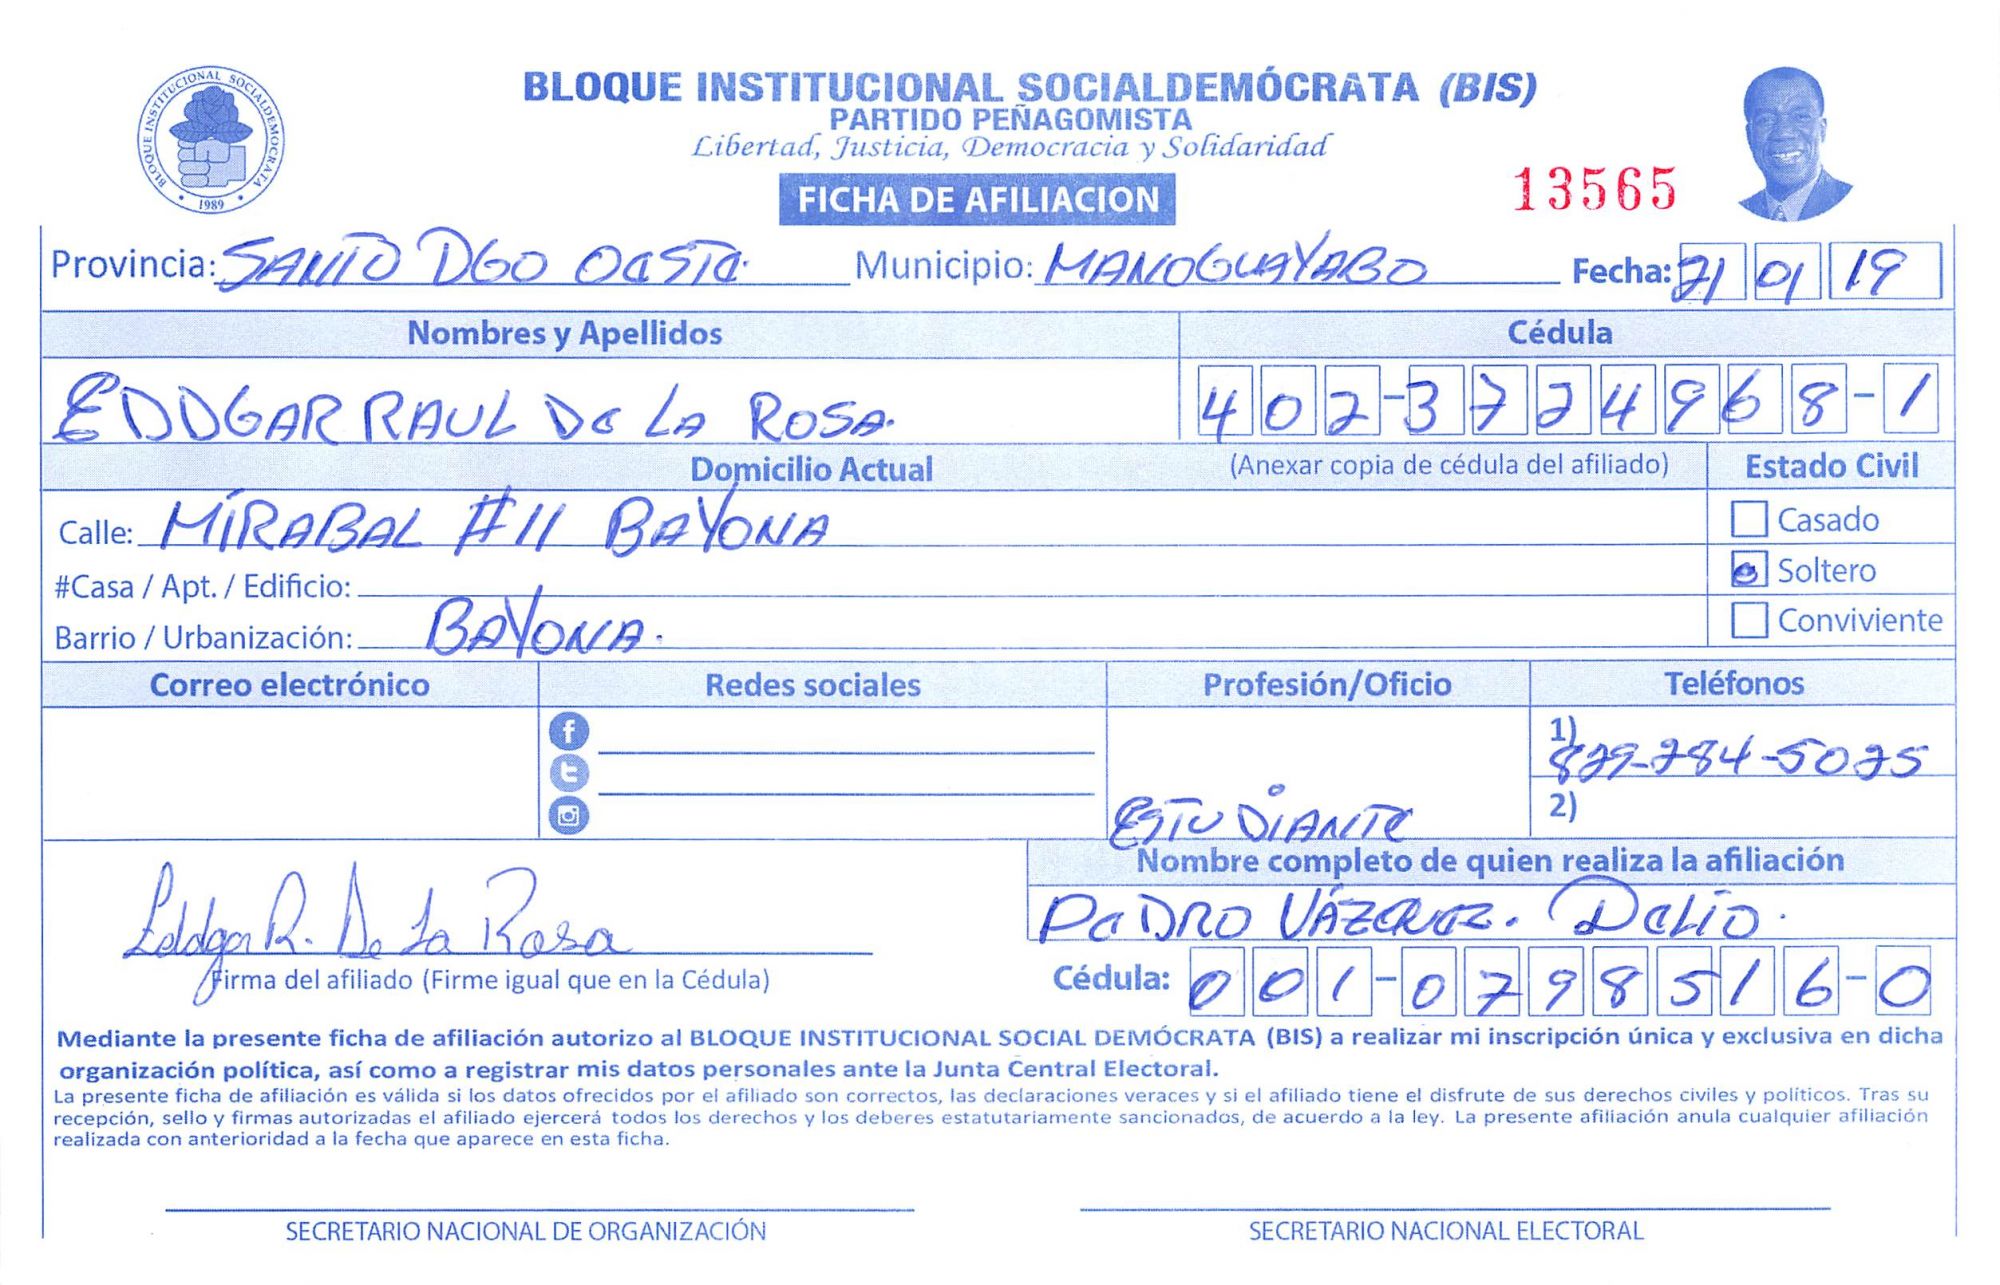 BLOQUE INSTITUCIONAL SOCIALDEMÓCRATA (BIS)
PARTIDO PEÑAGOMISTA
Libertad, Justicia, Democracia y Solidaridad
BLOQUE INSTITUCIONAL SOCIALDEMOCRATA
1989
FICHA DE AFILIACION
13565
Provincia: SANTO DGO OESTE. Municipio: MANOGUAYABO Fecha: 21 01 19
Nombres y Apellidos Cédula
EDDGAR RAUL DE LA ROSA. 402-3724968-1
Domicilio Actual (Anexar copia de cédula del afiliado) Estado Civil
Calle: MIRABAL #11 BAYONA Casado
#Casa / Apt. / Edificio: Soltero
Barrio / Urbanización: BAYONA. Conviviente
Correo electrónico Redes sociales Profesión/Oficio Teléfonos
1) 829-284-5025
ESTUDIANTE 2)
Nombre completo de quien realiza la afiliación
PEDRO VÁZQUEZ. DELIO.
Eddgar R. De La Rosa
Firma del afiliado (Firme igual que en la Cédula) Cédula: 001-0798516-0
Mediante la presente ficha de afiliación autorizo al BLOQUE INSTITUCIONAL SOCIAL DEMÓCRATA (BIS) a realizar mi inscripción única y exclusiva en dicha
organización política, así como a registrar mis datos personales ante la Junta Central Electoral.
La presente ficha de afiliación es válida si los datos ofrecidos por el afiliado son correctos, las declaraciones veraces y si el afiliado tiene el disfrute de sus derechos civiles y políticos. Tras su
recepción, sello y firmas autorizadas el afiliado ejercerá todos los derechos y los deberes estatutariamente sancionados, de acuerdo a la ley. La presente afiliación anula cualquier afiliación
realizada con anterioridad a la fecha que aparece en esta ficha.
SECRETARIO NACIONAL DE ORGANIZACIÓN SECRETARIO NACIONAL ELECTORAL